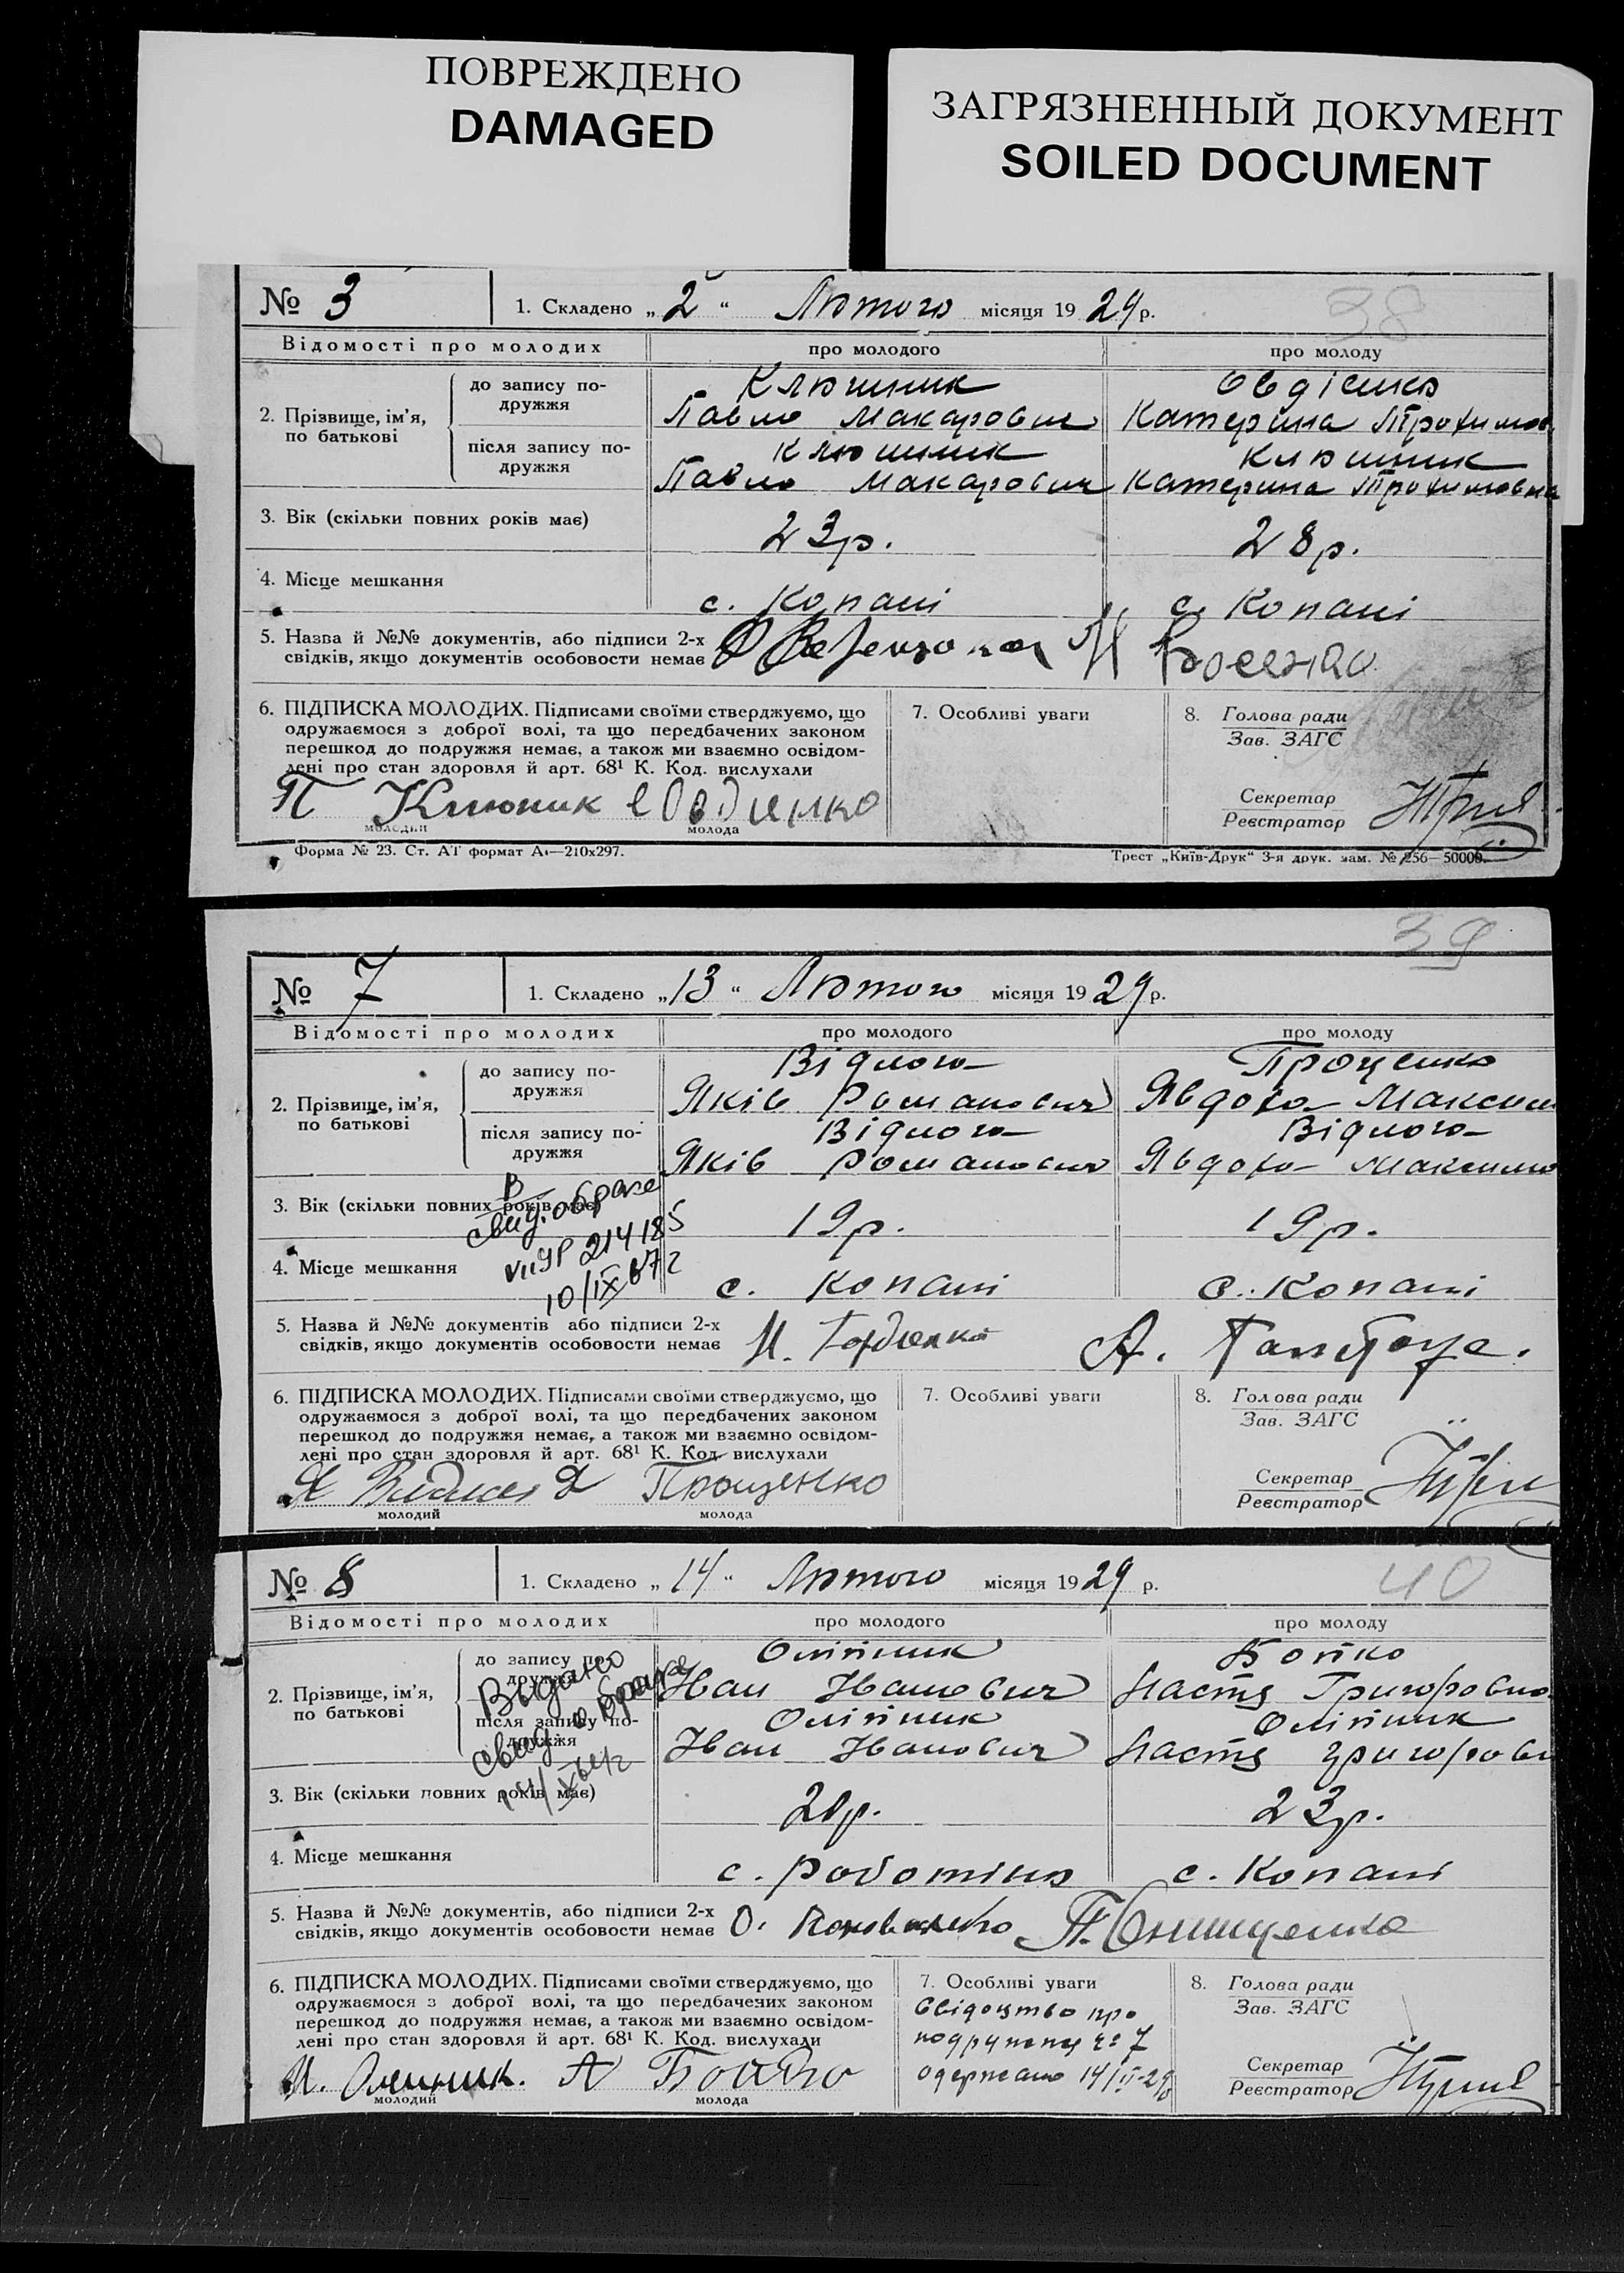 ПОВРЕЖДЕНО
DAMAGED
ЗАГРЯЗНЕННЫЙ ДОКУМЕНТ
SOILED DOCUMENT
№ 3 1. Складено „ 2 “ Лютого місяця 19 29 р. 38
Відомості про молодих про молодого про молоду
2. Прізвище, ім’я, по батькові
до запису подружжя Ключник Овдієнко
Павло Макарович Катерина Трохимов
після запису подружжя Ключник Ключник
Павло Макарович Катерина Трохимовна
3. Вік (скільки повних років має) 23р. 28р.
4. Місце мешкання с. Копані с. Копані
5. Назва й №№ документів, або підписи 2-х
свідків, якщо документів особовости немає
6. ПІДПИСКА МОЛОДИХ. Підписами своїми стверджуємо, що
одружаємося з доброї волі, та що передбачених законом
перешкод до подружжя немає, а також ми взаємно освідом-
лені про стан здоровля й арт. 68¹ К. Код. вислухали
П Ключник
молодий молода
7. Особливі уваги
8. Голова ради
Зав. ЗАГС
Секретар
Реєстратор
Форма № 23. Ст. АТ формат А₄—210х297. Трест „Київ-Друк“ 3-я друк. зам. № 256—50000.
39
№ 7 1. Складено „ 13 “ Лютого місяця 19 29 р.
Відомості про молодих про молодого про молоду
2. Прізвище, ім’я, по батькові
до запису подружжя Відмога Проценко
Яків Романович Явдоха Максим
після запису подружжя Відмога Відмога
Яків Романович Явдоха Максимо
3. Вік (скільки повних років має) 19р. 19р.
В
свид. о браке
214185
10/IX
4. Місце мешкання с. Копані с. Копані
5. Назва й №№ документів або підписи 2-х
свідків, якщо документів особовости немає
6. ПІДПИСКА МОЛОДИХ. Підписами своїми стверджуємо, що
одружаємося з доброї волі, та що передбачених законом
перешкод до подружжя немає, а також ми взаємно освідом-
лені про стан здоровля й арт. 68¹ К. Код. вислухали
Проценко
молодий молода
7. Особливі уваги
8. Голова ради
Зав. ЗАГС
Секретар
Реєстратор
№ 8 1. Складено „ 14 “ Лютого місяця 19 29 р. 40
Відомості про молодих про молодого про молоду
2. Прізвище, ім’я, по батькові
до запису подружжя Олійник Бойко
Іван Іванович Настя Григоровна
після запису подружжя Олійник Олійник
Іван Іванович Настя Григоровн
Выдано
свид о браке
3. Вік (скільки повних років має) 23р.
4. Місце мешкання с. Роботіно с. Копані
5. Назва й №№ документів, або підписи 2-х
свідків, якщо документів особовости немає О. Коноваленко П. Онищенко
6. ПІДПИСКА МОЛОДИХ. Підписами своїми стверджуємо, що
одружаємося з доброї волі, та що передбачених законом
перешкод до подружжя немає, а також ми взаємно освідом-
лені про стан здоровля й арт. 68¹ К. Код. вислухали
молодий молода
7. Особливі уваги
Свідоцтво про
подружжя № 7
одержано 14/II-29р
8. Голова ради
Зав. ЗАГС
Секретар
Реєстратор